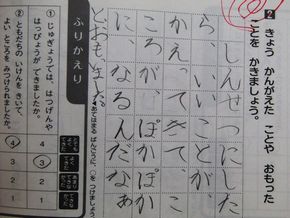 2 きょう かんがえた ことや おもった
ことを かきましょう。
しんせつにした
ら、いいことが
かえってきて、
こころが、ぽかぽか
に、なるんだなあ
とおもいました。
◀あてはまる ばんごうに、○を つけましょう。
ふりかえり
① じゅぎょうでは、はつげんや
はっぴょうが できましたか。
4 3 2 1
② ともだちの いけんを きいて、
よい ところを みつけられましたか。
4 3 2 1